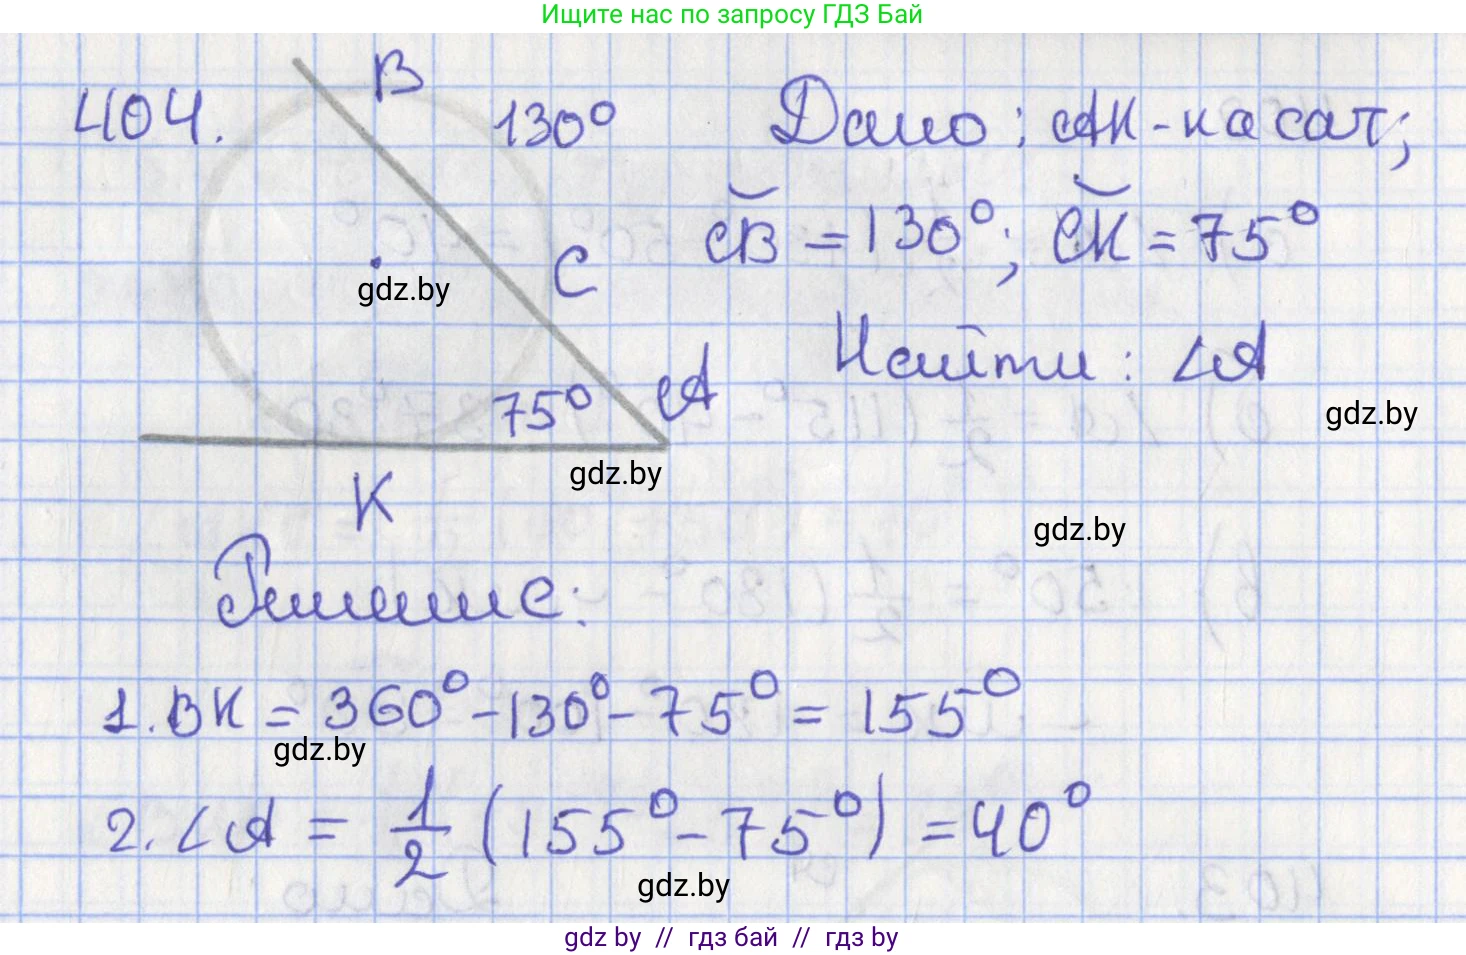 Ищите нас по запросу ГДЗ Бай
404.
B
130°
C
gdz.by
75°
A
gdz.by
K
Дано: AK - касат;
CB = 130°; CK = 75°
Найти: ∠A
gdz.by
gdz.by
Решение:
1. BK = 360° - 130° - 75° = 155°
gdz.by
2. ∠A = 1/2 (155° - 75°) = 40°
gdz.by
gdz by // гдз бай // гдз by